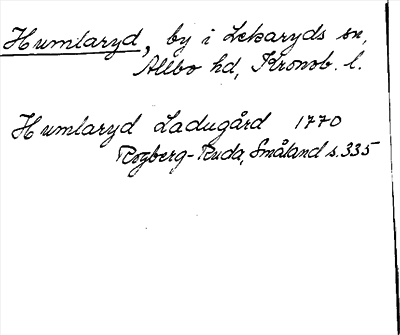 Humlaryd, by i Lekaryds sn,
Allbo hd, Kronob. l.
Humlaryd Ladugård 1770
Rogberg-Ruda, Småland s. 335